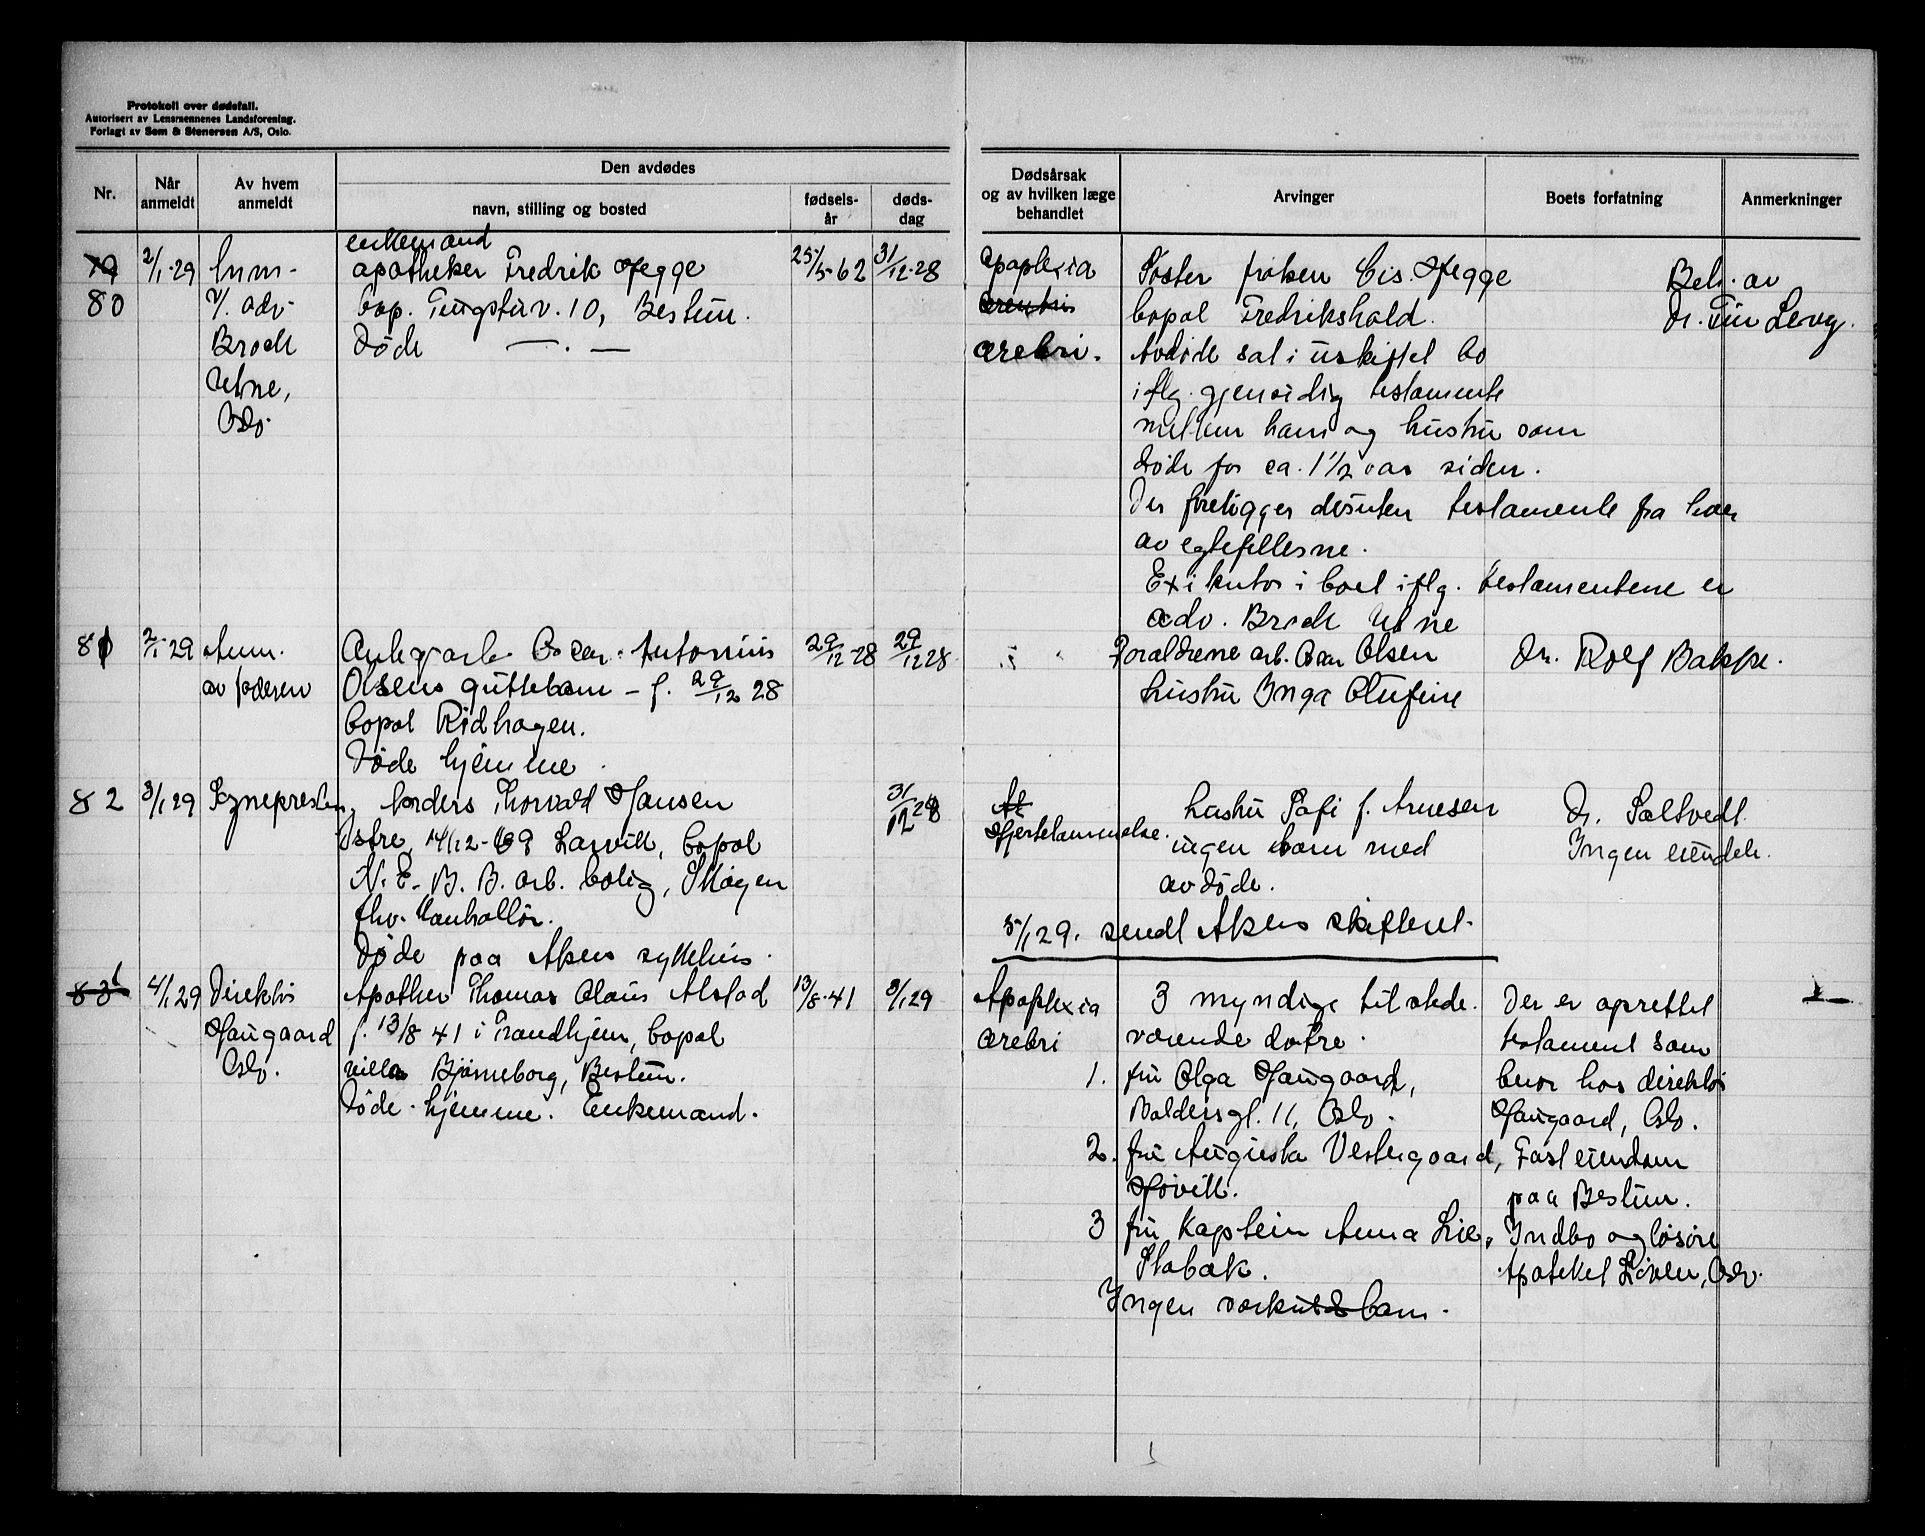 Protokoll over dødsfall.
Autorisert av Lensmennenes Landsforening.
Forlagt av Sem & Stenersen A/S, Oslo.
Nr.
Når anmeldt
Av hvem anmeldt
Den avdødes
navn, stilling og bosted
fødselsår
dødsdag
Dødsårsak og av hvilken læge behandlet
Arvinger
Boets forfatning
Anmerkninger
79
80
2/1-29
v/ adv
Broch
Utne,
Oslo.
enkemand
apotheker Fredrik Hegge
bop. Tingstuv. 10, Bestum.
døde
25/5-62
31/12-28
Apoplexia
cerebri
cerebri.
Søster frøken Cis. Hegge
bopæl Fredrikshald.
Avdøde sat i uskiftet bo
iflg. gjensidig testamente
mellem ham og hustru som
døde for ca. 1 1/2 aar siden.
Der foreligger desuten testamente fra hver
av egtefellerne.
Exikutor i boet iflg. testamentene er
adv. Broch Utne
Beh. av
dr. Finn Levy.
81
2/1-29
Anm.
av faderen
Anlegsarb. Oscar Antonius
Olsens guttebarn - f. 29/12 28
bopæl Rødhagen.
Døde hjemme.
29/12 28
29/12 28
Forældrene arb. Oscar Olsen
hustru Inga Olufine
dr. Rolf Bakke.
82
3/1 29
Sognepresten
Anders Thorvald Hansen
Østre, 14/12-69 Larvik, bopæl
N. E. B. B. arb. bolig, Skøyen
fhv.
Døde paa Akers sykehus.
31/12 28
Hjertelammelse.
hustru Sofi f. Arnesen
ingen barn med
avdøde.
5/1 29. sendt Akers skifteret.
Dr. Saltvedt.
Ingen eiendele.
83
4/1 29
Direktør
Haugaard
Oslo.
Apother Thomas Claus Alstad
f. 13/8 41 i Trondhjem, bopæl
villa Bjørneborg, Bestum.
Døde hjemme. Enkemand.
13/8-41
3/1 29
Apoplexia
cerebri
3 myndige tilstede-
værende døtre.
1. fru Olga Haugaard,
Baldersgt. 11, Oslo.
2. fru Augusta Vestergaard,
Høvik.
3 fru Kaptein Anna Lie,
Stabæk.
Ingen særkuldsbarn.
Der er oprettet
testament som
beror hos direktør
Haugaard, Oslo.
Fast eiendom
paa Bestum.
Indbo og løsøre
Apoteket Løven, Oslo.